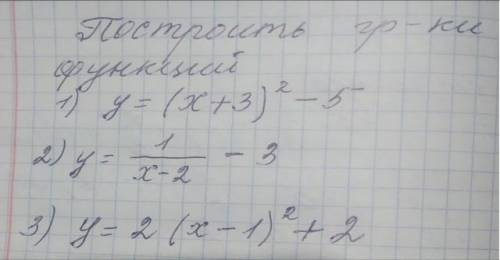 Построить гр-ки
функций
1) y = (x+3)² - 5
2) y = 1/(x-2) - 3
3) y = 2 (x-1)² + 2